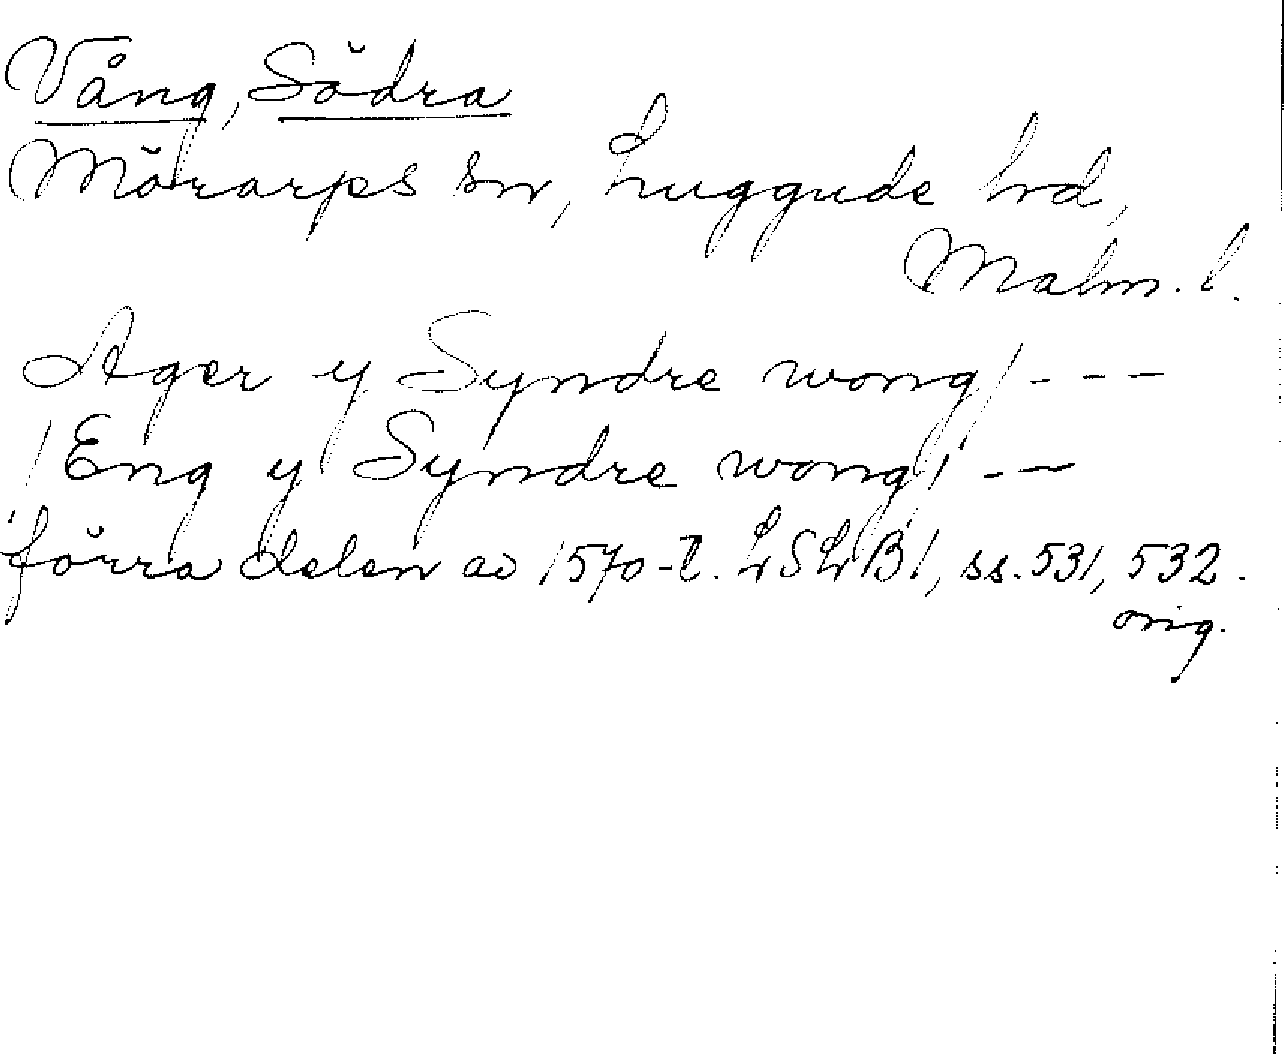 Vång, Södra
Mörarps sn, Luggude hd,
Malm. l.
Ager y Syndre wong / - - -
/ Eng y Syndre wong / - -
förra delen av 1570-t. LSLB1, ss. 531, 532.
orig.